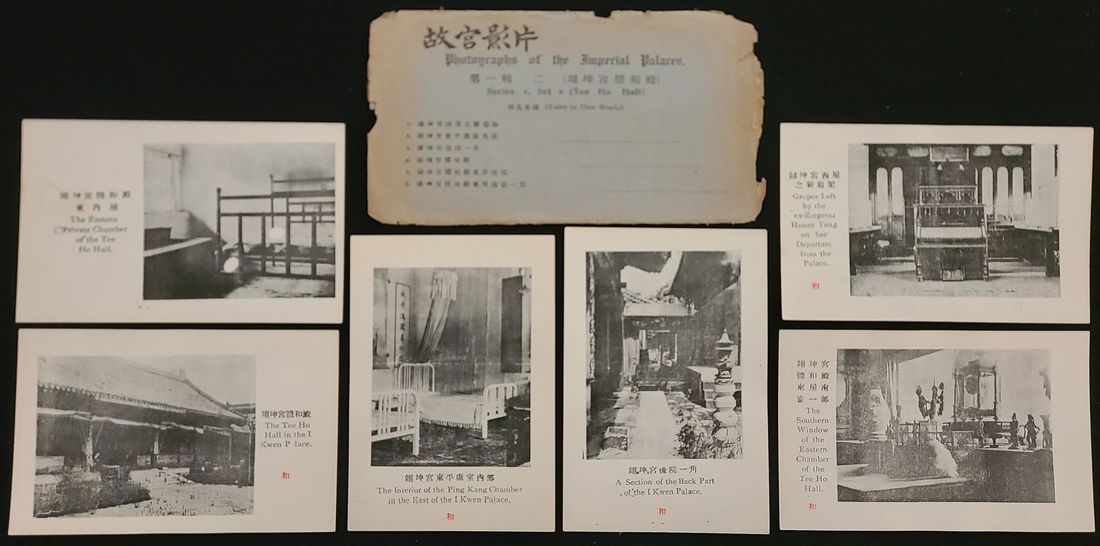 故宮影片
Photographs of the Imperial Palaces.
第一輯 二 (翊坤宮體和殿)
Series 1, Set 2 (Tee Ho Hall)
翊坤宮體和殿
東內屋
The Eastern
Private Chamber
of the Tee
Ho Hall.
翊坤宮西屋
Grapes Left
by the
ex-Empress
Hsuan Tung
on her
Departure
from the
Palace.
和
翊坤宮體和殿
The Tee Ho
Hall in the I
Kwen Palace.
和
翊坤宮東平康室內部
The Interior of the Ping Kang Chamber
in the East of the I Kwen Palace.
和
翊坤宮後院一角
A Section of the Back Part
of the I Kwen Palace.
和
翊坤宮
體和殿
東屋南
窗一部
The
Southern
Window
of the
Eastern
Chamber
of the
Tee Ho
Hall.
和